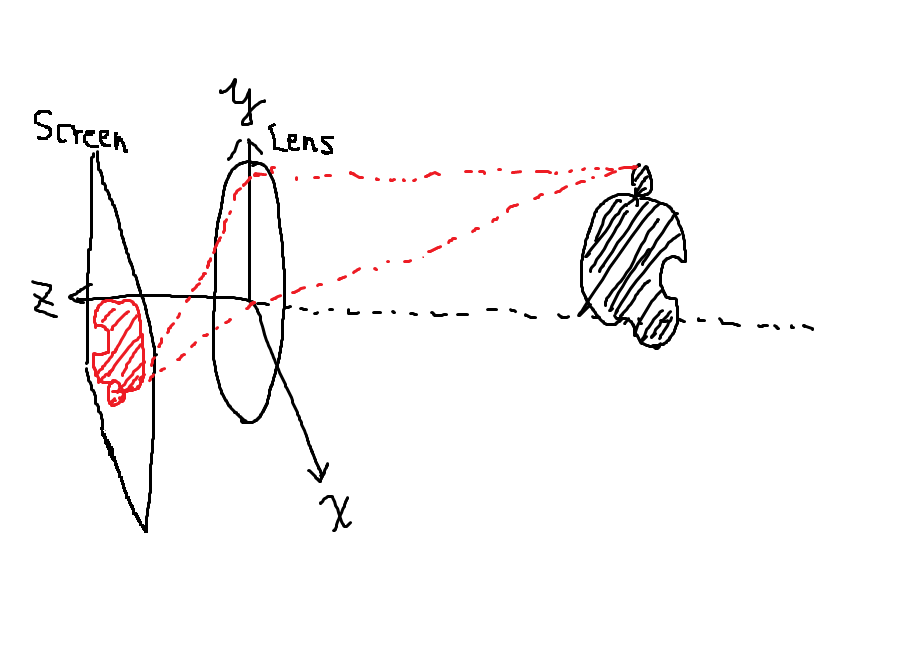 y
Screen
Lens
z
x